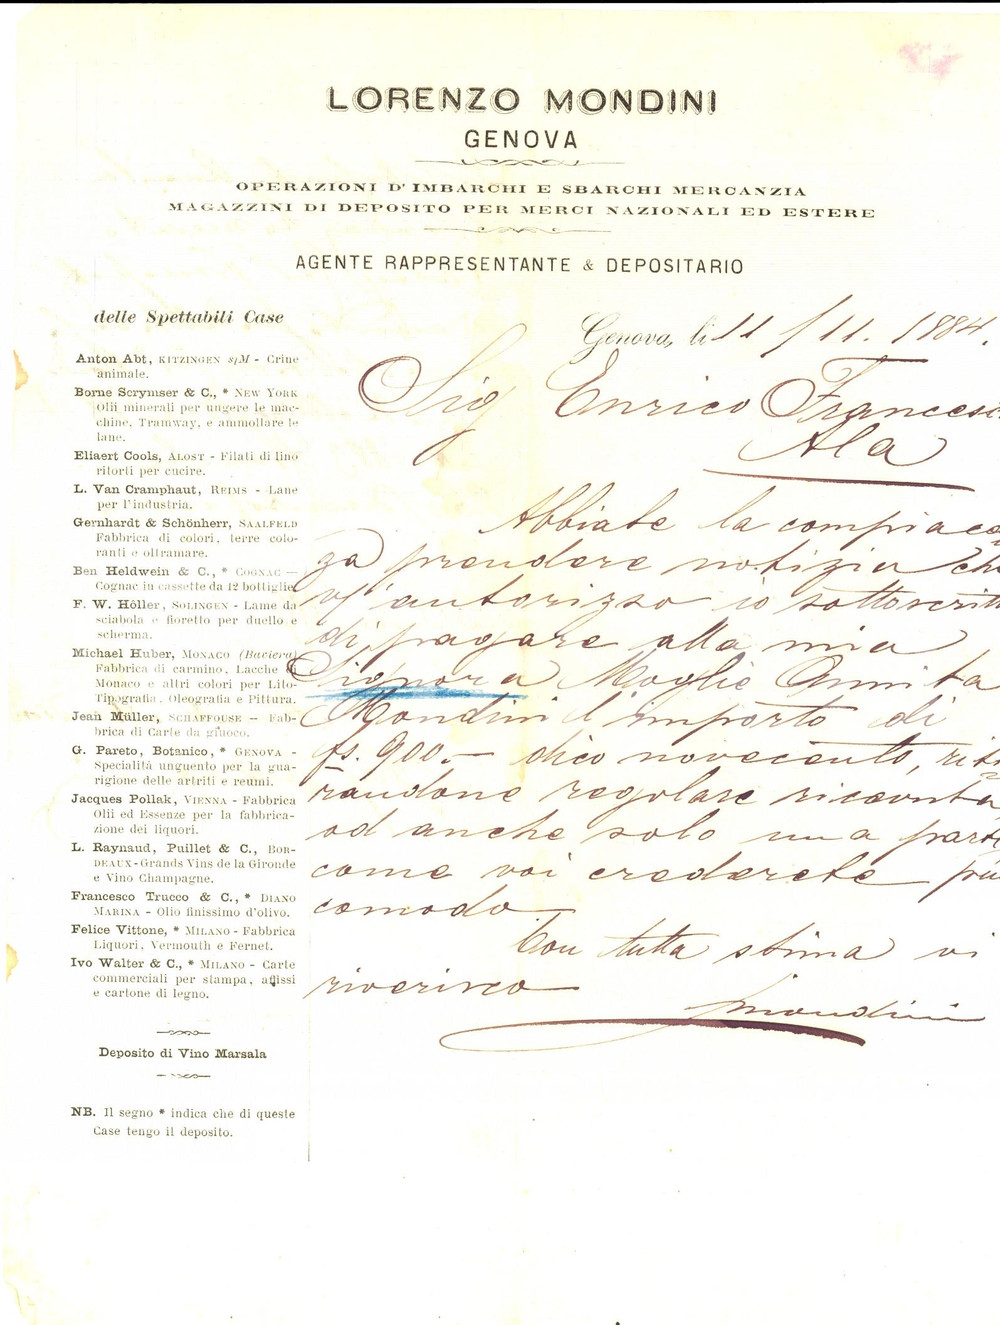 LORENZO MONDINI
GENOVA
OPERAZIONI D'IMBARCHI E SBARCHI MERCANZIA
MAGAZZINI DI DEPOSITO PER MERCI NAZIONALI ED ESTERE
AGENTE RAPPRESENTANTE & DEPOSITARIO
delle Spettabili Case
Anton Abt, KITZINGEN s/M - Crine
animale.
Borne Scrymser & C., * NEW YORK
Olii minerali per ungere le mac-
chine, Tramway, e ammollare le
lane.
Eliaert Cools, ALOST - Filati di lino
ritorti per cucire.
L. Van Cramphaut, REIMS - Lane
per l'industria.
Gernhardt & Schönherr, SAALFELD
Fabbrica di colori, terre colo-
ranti e oltramare.
Ben Heldwein & C., * COGNAC —
Cognac in cassette da 12 bottiglie
F. W. Höller, SOLINGEN - Lame da
sciabola e fioretto per duello e
scherma.
Michael Huber, MONACO (Baviera)
Fabbrica di carmino, Lacche di
Monaco e altri colori per Lito-
Tipografia, Oleografia e Pittura.
Jean Müller, SCHAFFOUSE — Fab-
brica di Carte da giuoco.
G. Pareto, Botanico, * GENOVA -
Specialità unguento per la gua-
rigione delle artriti e reumi.
Jacques Pollak, VIENNA - Fabbrica
Olii ed Essenze per la fabbrica-
zione dei liquori.
L. Raynaud, Puillet & C., BOR-
DEAUX - Grands Vins de la Gironde
e Vino Champagne.
Francesco Trucco & C., * DIANO
MARINA - Olio finissimo d'olivo.
Felice Vittone, * MILANO - Fabbrica
Liquori, Vermouth e Fernet.
Ivo Walter & C., * MILANO - Carte
commerciali per stampa, affissi
e cartone di legno.
Deposito di Vino Marsala
NB. Il segno * indica che di queste
Case tengo il deposito.
Genova, li 11/11. 1884.
Sig Enrico Francesc
Ala
Abbiate la compiacen
za prendere notizia che
v'autorizzo io sottoscritt
di pagare alla mia
Signora Moglie Annita
Mondini l'importo di
fs. 900.- dico novecento, riti
randone regolare ricevuta
od anche solo una parte
come voi crederete più
comodo
Con tutta stima vi
riverisco
Mondini